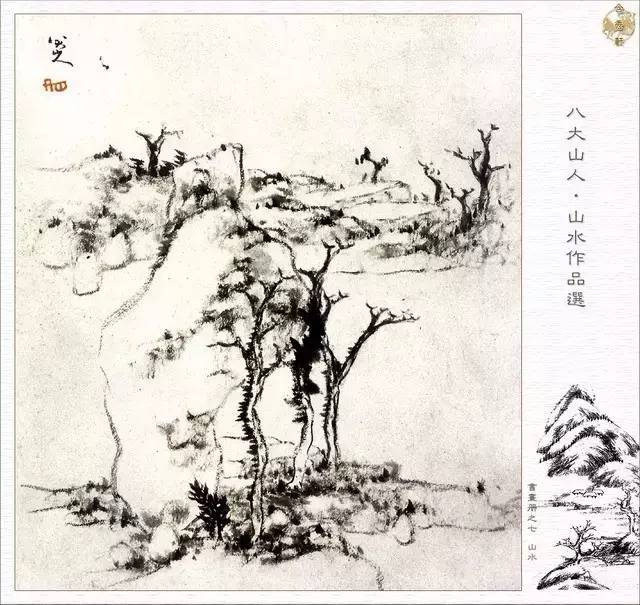 八大山人·山水作品選
書畫册之七 山水